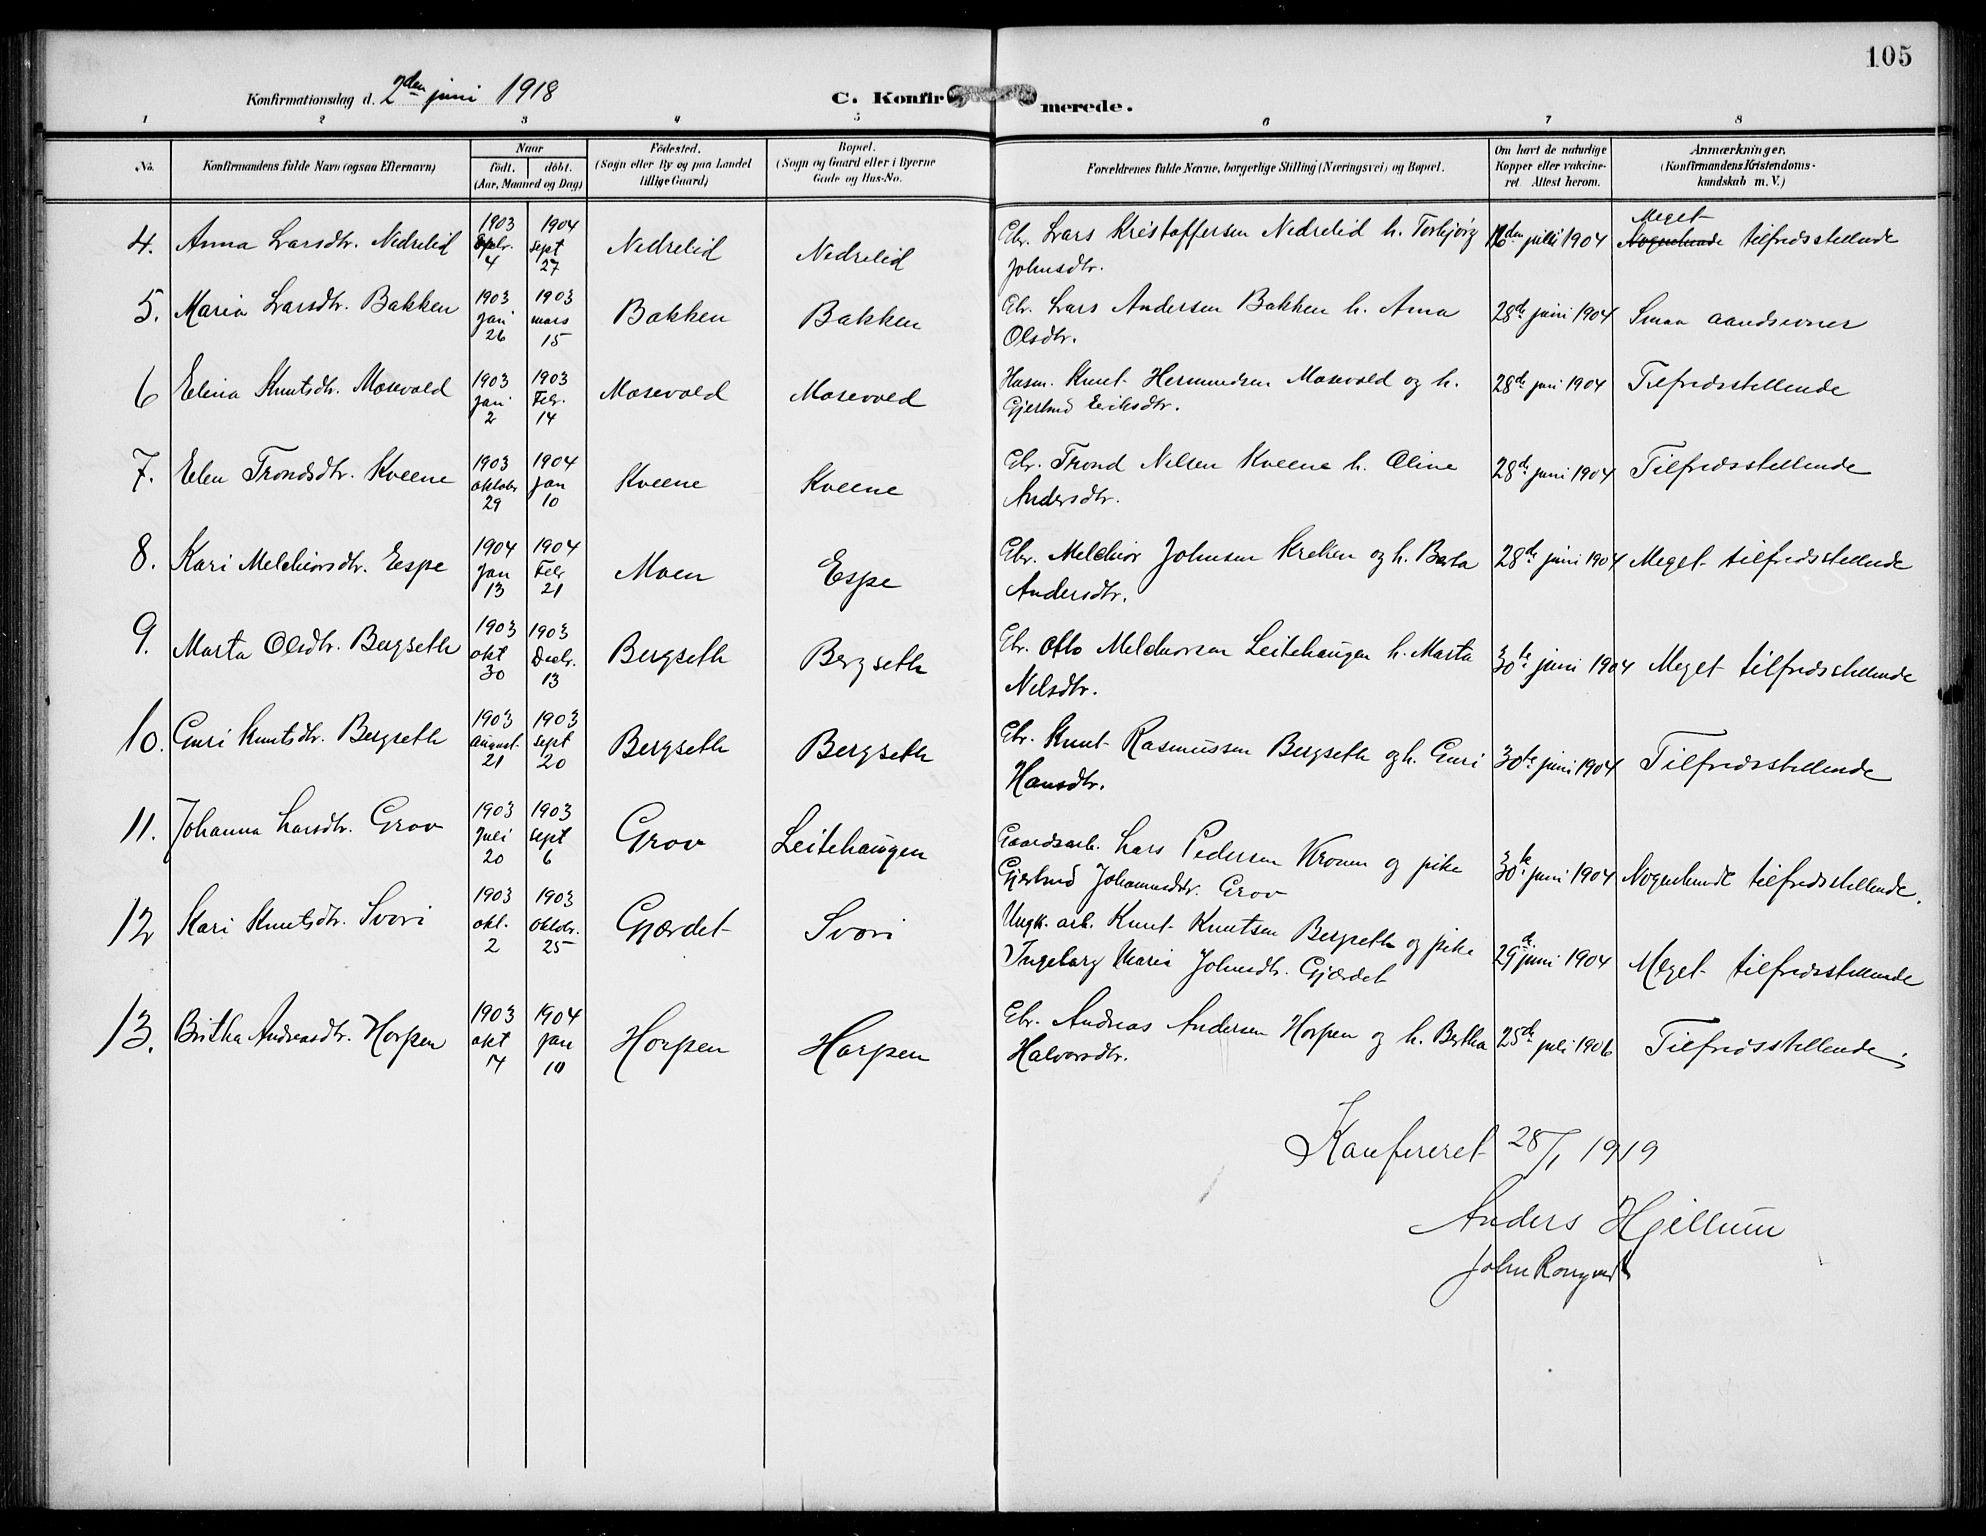 105
Konfirmationsdag d. 2den juni 1918
C. Konfirmerede.
1 2 3 4 5 6 7 8
No.
Konfirmandens fulde Navn (ogsaa Efternavn)
Naar
födt. döbt.
(Aar, Maaned og Dag)
Födested.
(Sogn eller By og paa Landet
tillige Gaard)
Bopæl.
(Sogn og Gaard eller i Byerne
Gade og Hus-No.
Forældrenes fulde Navne, borgerlige Stilling (Næringsvei) og Bopæl.
Om havt de naturlige
Kopper eller vakcine-
ret. Attest herom.
Anmærkninger,
(Konfirmandens Kristendoms-
kundskab m. V.)
4. Anna Larsdtr. Nedrelid 1903 4 1904 sept 27 Nedrelid Nedrelid Gbr. Lars Kristoffersen Nedrelid h. Torbjörg 1904 Meget tilfredsstillende
Johnsdtr.
5. Maria Larsdtr. Bakken 1903 jan 26 1903 mars 15 Bakken Bakken Gbr. Lars Andersen Bakken h. Anna 28de juni 1904 Smaa aandsevner
Olsdtr.
6 Elina Knutsdtr. Mosevold 1903 jan 2 1903 Febr. 14 Mosevold Mosevold Husm. Knut Hermundsen Mosevold og h. 28de juni 1904 Tilfredsstillende
Gjertrud Eriksdtr.
7. Elen Trondsdtr. Kveene 1903 oktobr 29 1904 jan 10 Kveene Kveene Gbr. Trond Nilsen Kveene h. Oline 28de juni 1904 Tilfredsstillende
Andersdtr.
8. Kari Melchiorsdtr. Espe 1904 jan 13 1904 Febr 21 Moen Espe Gbr. Melchior Johnsen Kreken og h. Berta 28de juni 1904 Meget tilfredsstillende
Andersdtr.
9. Marta Olsdtr. Bergseth 1903 okt 30 1903 Decbr. 13 Bergseth Bergseth Gbr. Otto Melchiorsen Leitehaugen h. Marta 30te juni 1904 Meget tilfredsstillende
Nelsdtr.
10. Guri Knutsdtr. Bergseth 1903 august 21 1903 sept 20 Bergseth Bergseth Gbr. Knut Rasmussen Bergseth og h. Guri 30te juni 1904 Tilfredsstillende
Hansdtr.
11. Johanna Larsdtr. Grov 1903 juli 20 1903 sept 6 Grov Leitehaugen Gaardsarb. Lars Pedersen Kronen og pike 30te juni 1904 Nogenlunde tilfredsstillende.
Gjertrud Johannesdtr. Grov
12 Kari Knutsdtr. Svori 1903 okt. 2 1903 oktobr. 25 Gjærdet Svori Ungk. arb. Knut Knutsen Bergseth og pike 29de juni 1904 Meget tilfredsstillende
Ingeborg Marie Johnsdtr. Gjærdet
13. Britha Andreasdtr. Horpen 1903 okt 7 1904 jan 10 Horpen Horpen Gbr. Andreas Andersen Horpen og h. Bertha 25de juli 1906 Tilfredsstillende
Halvorsdtr.
Konfereret 28/1 1919
Anders Hjellum
John